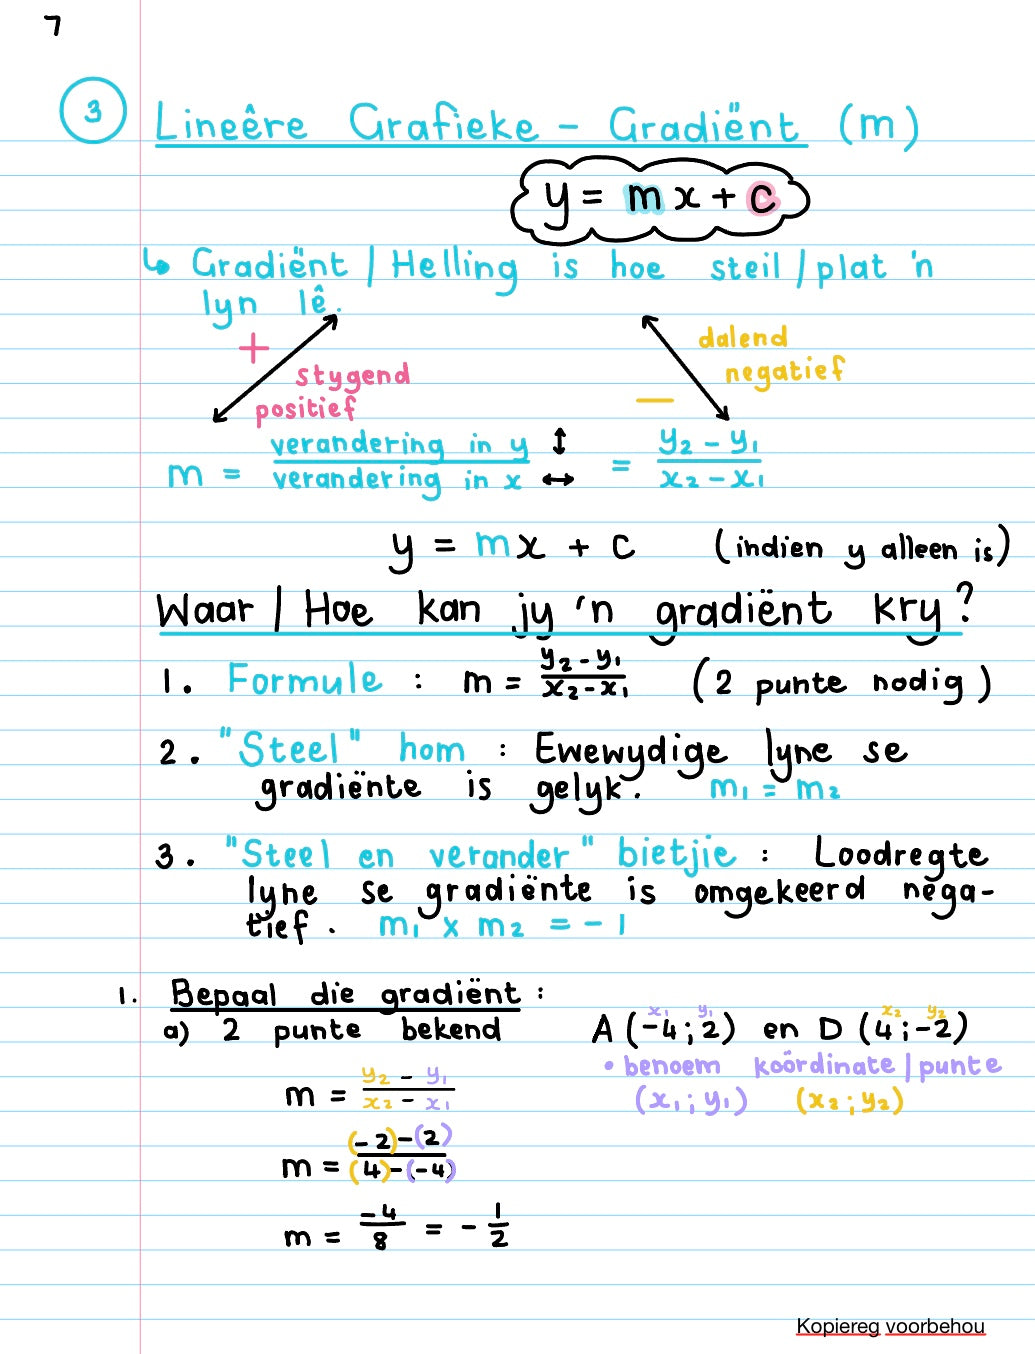 7
3 Lineêre Grafieke - Gradiënt (m)
y = mx + c
↳ Gradiënt / Helling is hoe steil / plat 'n
lyn lê.
+ stygend
positief
dalend
negatief
−
m = verandering in y ↕ / verandering in x ↔ = y₂ - y₁ / x₂ - x₁
y = mx + c (indien y alleen is)
Waar / Hoe kan jy 'n gradiënt kry?
1. Formule : m = y₂ - y₁ / x₂ - x₁ (2 punte nodig)
2. "Steel" hom : Ewewydige lyne se
gradiënte is gelyk. m₁ = m₂
3. "Steel en verander" bietjie : Loodregte
lyne se gradiënte is omgekeerd nega-
tief. m₁ x m₂ = -1
1. Bepaal die gradiënt :
x₁ y₁ x₂ y₂
a) 2 punte bekend A(-4;2) en D(4;-2)
• benoem koördinate / punte
(x₁;y₁) (x₂;y₂)
m = y₂ - y₁ / x₂ - x₁
m = (-2)-(2) / (4)-(-4)
m = -4 / 8 = - 1/2
Kopiereg voorbehou